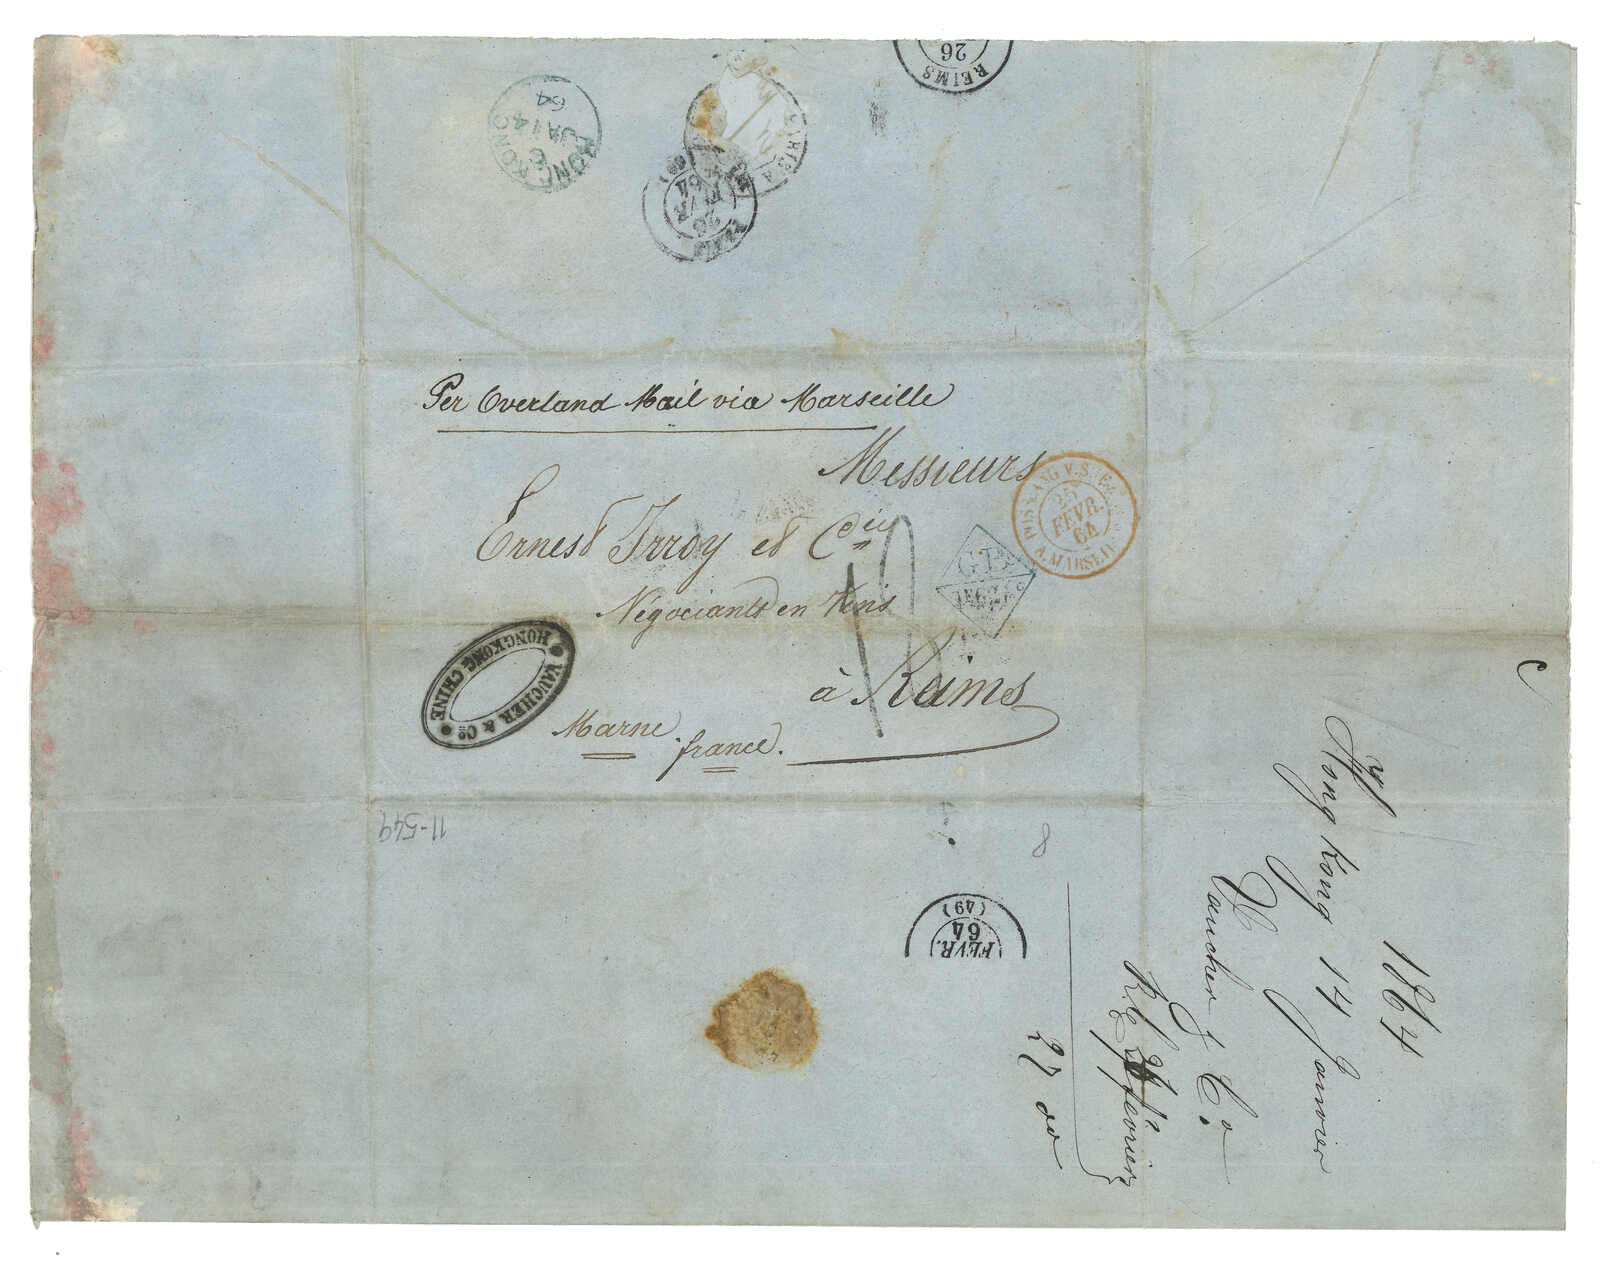 26
REIMS
HONG KONG
C
JA 14
64
PARIS A
26
FEVR
64
(60)
Per Overland Mail via Marseille
Messieurs
Ernest Irroy et Cie
Négociants en Vins
à Reims
Marne
france.
POSS. ANG. V. SUEZ
25
FEVR.
64
A. MARSEILLE
GB
1F62
VAUCHER & Co.
HONGKONG CHINE
11-549
8
FEVR.
64
(49)
C
1864
Hong Kong 14 Janvier
Vaucher & Co
fevrier
27